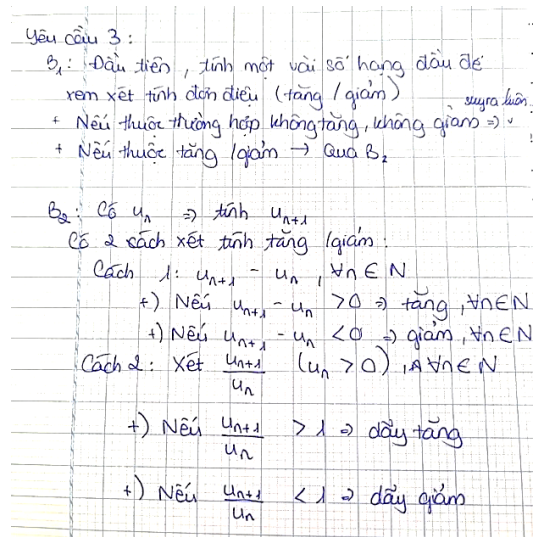 Yêu cầu 3:
B₁: Đầu tiên, tính một vài số hạng đầu để
xem xét tính đơn điệu (tăng / giảm)
+ Nếu thuộc trường hợp không tăng, không giảm => suy ra luôn
+ Nếu thuộc tăng / giảm → Qua B₂
B₂: Có uₙ => tính uₙ₊₁
Có 2 cách xét tính tăng / giảm:
Cách 1: uₙ₊₁ - uₙ, ∀n ∈ N
+) Nếu uₙ₊₁ - uₙ > 0 => tăng, ∀n ∈ N
+) Nếu uₙ₊₁ - uₙ < 0 => giảm, ∀n ∈ N
Cách 2: Xét uₙ₊₁/uₙ (uₙ > 0), ∀n ∈ N
+) Nếu uₙ₊₁/uₙ > 1 => dãy tăng
+) Nếu uₙ₊₁/uₙ < 1 => dãy giảm